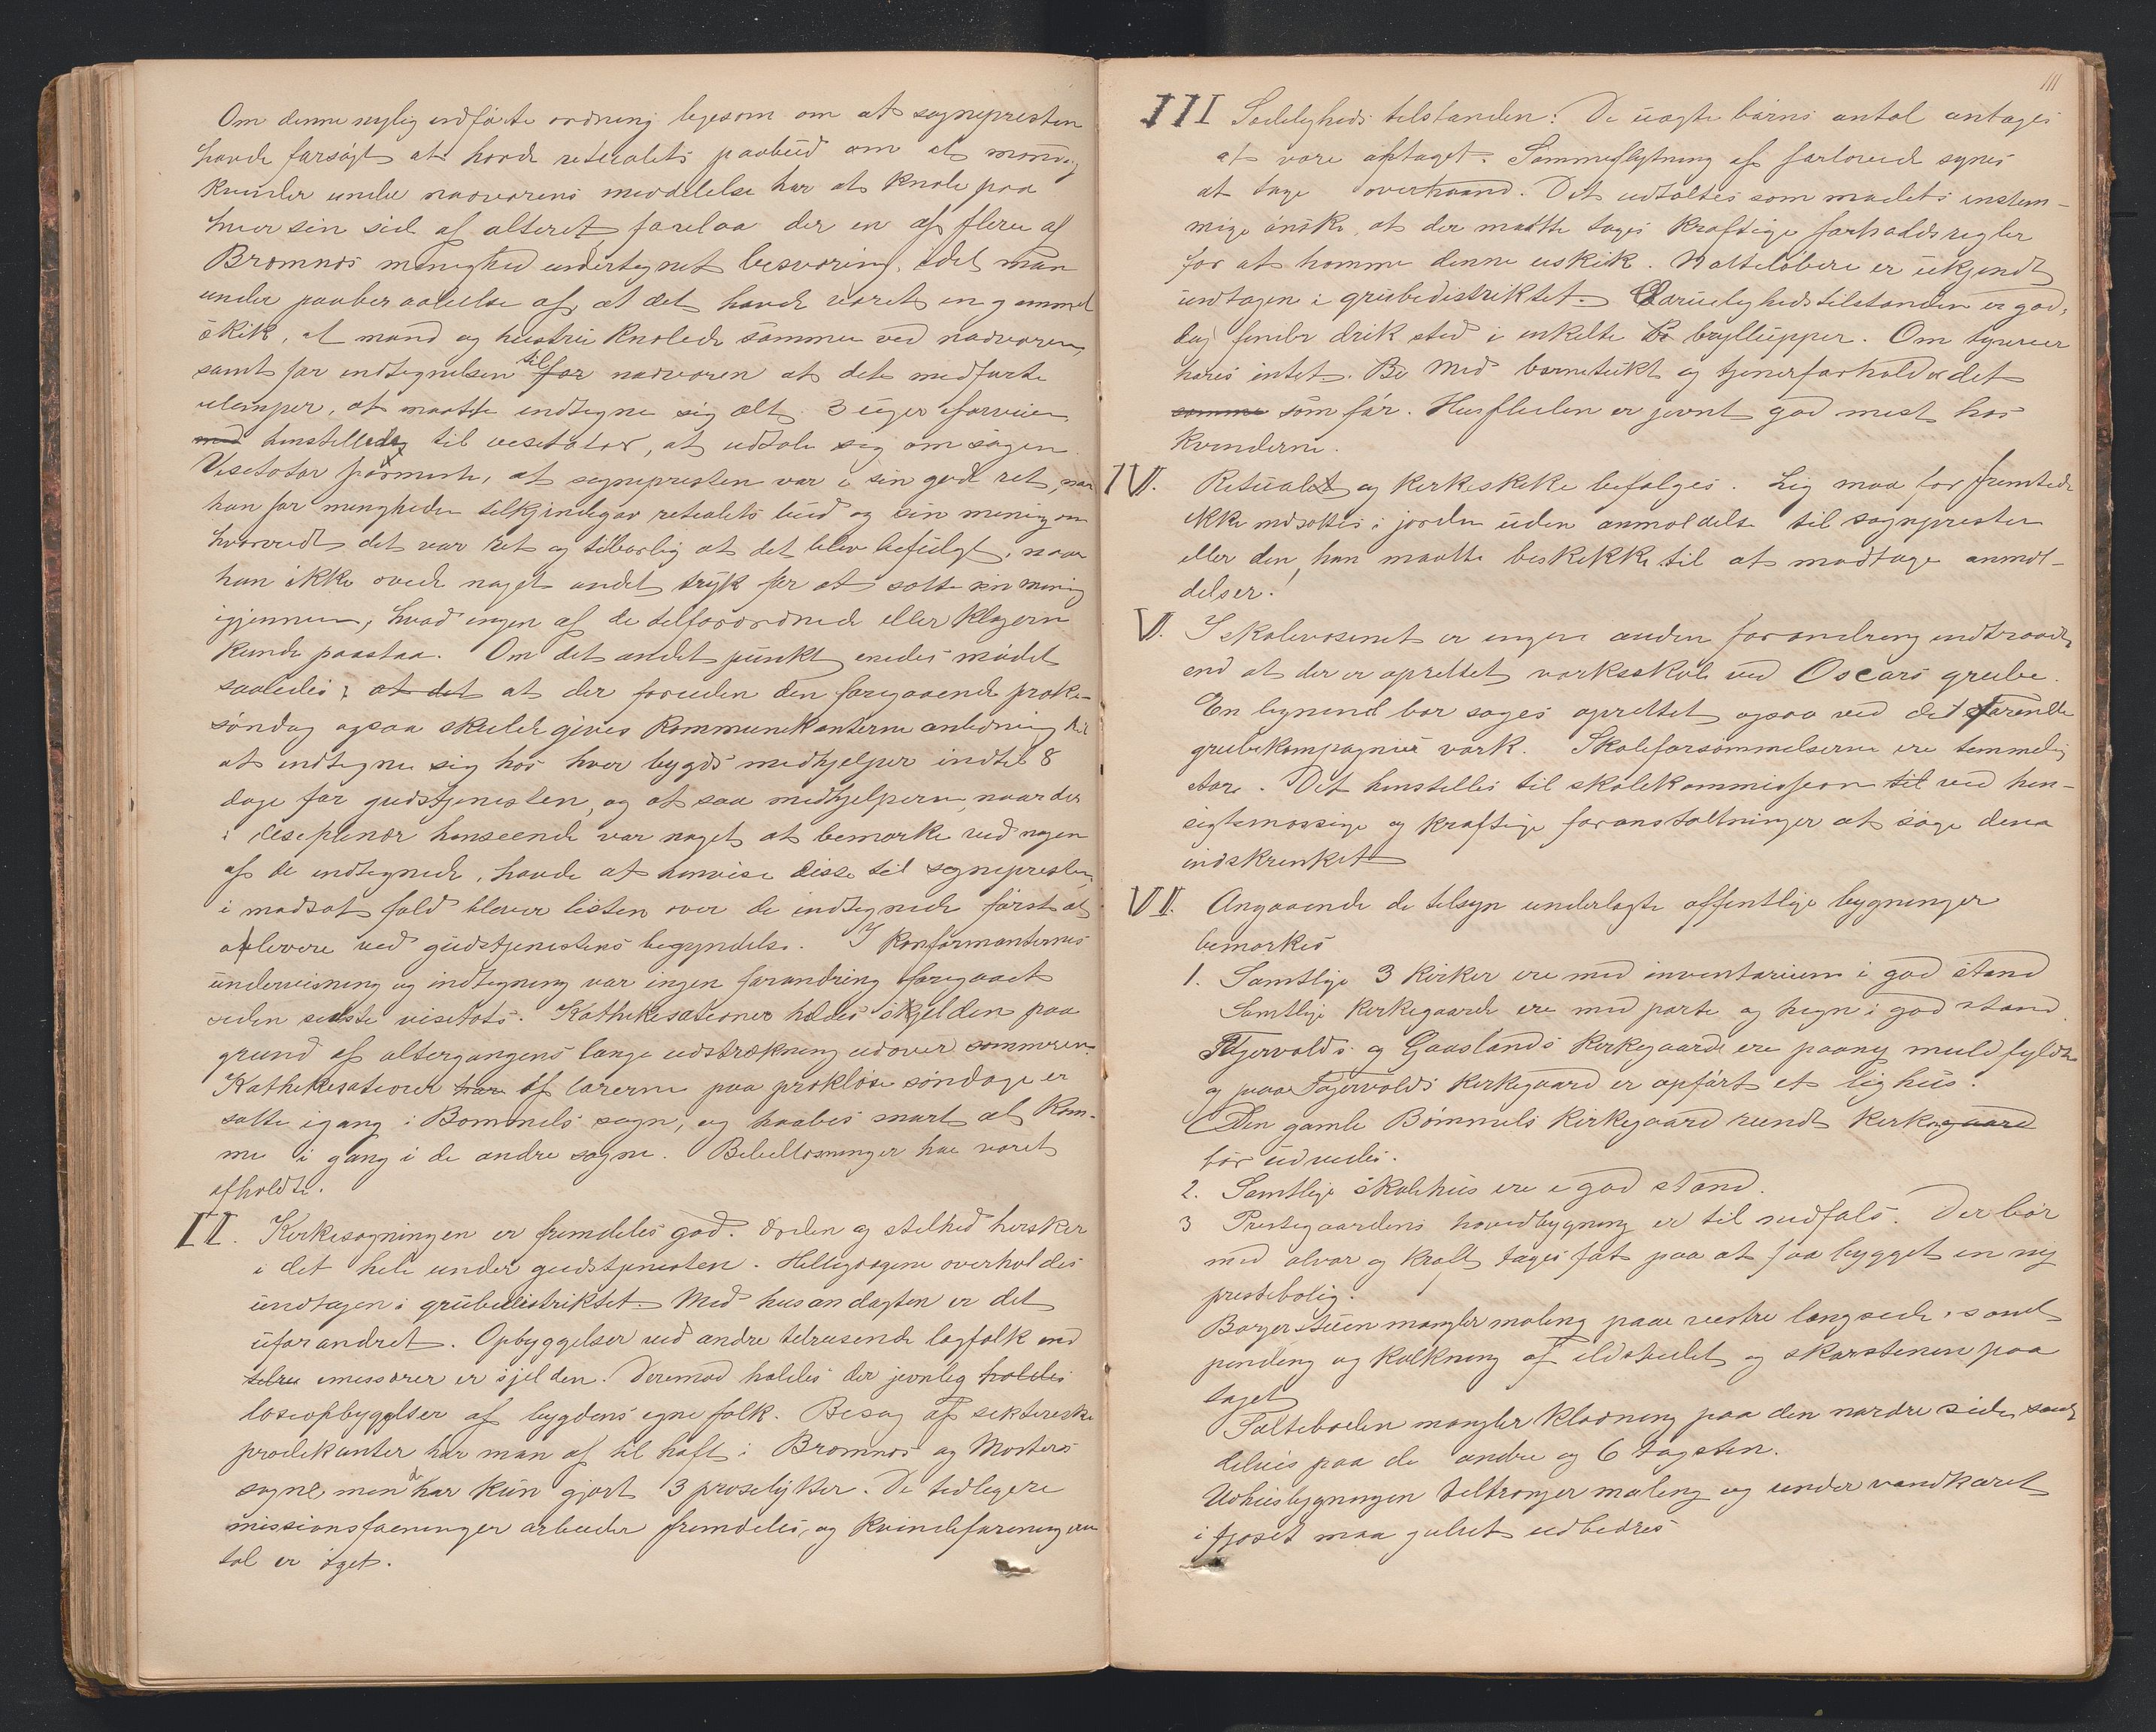 Om denne nylig indførte ordning ligesom om at sognepresten
havde forsøgt at havde ritualets paabud om at mænd og
kvinder under nadverens meddelelse har at knæle paa
hver sin side af alteret forelaa der en af flere af
Bremnes menighed undertegnet besværing, idet man
under paaberaabelse af, at det havde været en gammel
skik, at mand og hustru knælede sammen ved nadveren,
samt for indtegnelsen til for nadveren at det medførte
ulemper, at maatte indtegne sig alt 3 uger iforveien
med henstilledes til visitator, at udtale sig om sagen.
Visitator formente, at sognepresten var i sin gode ret, naar
han for menigheden tilkjendegav ritualets bud og sin mening om
hvorvidt det var ret og tilbørlig at det blev befulgt, naar
han ikke øvede noget andet tryk for at sætte sin mening
igjennem, hvad ingen af de tilforordnede eller klagerne
kunde paastaa. Om det andet punkt enedes mødet
saaledes: at det at der foruden den foregaaende præke-
søndag ogsaa skulde gives kommunikanterne anledning til
at indtegne sig hos hver bygds medhjelper indtil 8
dage før gudstjenesten, og at saa medhjelperne, naar der
i disciplinær henseende var noget at bemærke ved nogen
af de indtegnede, havde at henvise disse til sognepresten,
i modsat fald bliver listen over de indtegnede først at
aflevere ved gudstjenestens begyndelse. I konfirmanternes
undervisning og indtegning var ingen forandring foregaaet
siden sidste visitats. Kathekisationer holdes skjelden paa
grund af altergangens lange udstrækning udover sommeren.
Kathekisationer har af lærerne paa prækløse søndage er
satte igang i Bømmels sogn, og haabes snart at kom-
me i gang i de andre sogne. Bibellæsninger har været
afholdte.
II. Kirkesøgningen er fremdeles god. Orden og stilhed hersker
i det hele under gudstjenesten. Helligdagene overholdes
undtagen i grubedistriktet. Med husandagten er det
uforandret. Opbyggelser ved andre tilreisende lægfolk end
tilrei emissærer er sjelden. Derimod holdes der jevnlig holdes
læseopbyggelser af bygdens egne folk. Besøg af sekteriske
prædikanter har man af til haft i Bremnes og Mosters
sogne men d har kun gjort 3 proselytter. De tidligere
missionsforeninger arbeider fremdeles, og kvindeforeningernes
tal er øget.
111
III Sædelighedstilstanden: De uægte børns antal antages
at være aftaget. Sammenflytning af forlovede synes
at tage overhaand. Det udtaltes som mødets enstem-
mige ønske, at der maatte tages kraftige forholdsregler
for at hemme denne uskik. Natteløberi er ukjendt
undtagen i grubedistriktet. Ædruelighedstilstanden er god,
dog finder drik sted i enkelte Br bryllupper. Om tyverier
høres intet. Be Med børnetukt og tjenerforhold er det
samme som før. Husfliden er jevnt god mest hos
kvinderne.
IV. Ritualet og kirkeskikke befølges. Lig maa for fremtiden
ikke nedsættes i jorden uden anmeldelse til sognepresten
eller den, han maatte beskikke til at modtage anmel-
delser.
V. I skolevæsenet er ingen anden forandring indtraadt,
end at der er oprettet værksskole ved Oscars grube.
En lignende bør søges oprettet ogsaa ved det
grubekompagnies værk. Skoleforsømmelserne ere temmelig
store. Det henstilles til skolekommissionen til ved hen-
sigtsmæssige og kraftige foranstaltninger at søge dem
indskrenket
VI. Angaaende de tilsyn underlagte offentlige bygninger
bemærkes
1. Samtlige 3 kirker ere med inventarium i god stand
Samtlige kirkegaarde ere med porte og hegn i god stand.
Fgervolds og Gaaslands kirkegaarde ere paany muldfyldte
og paa Fgervolds kirkegaard er opført et lighus.
Den gamle Bømmels kirkegaard rundt kirken gaard
bør udvides.
2. Samtlige skolehus ere i god stand.
3 Prestegaardens hovedbygning er til nedfals. Der bør
med alvor og kraft tages fat paa at faa bygget en ny
prestebolig.
Borgerstuen mangler maling paa vestre langside, samt
pindning og kalkning af ildstedet og skorstenen paa
taget
Falteboden mangler klædning paa den nordre side, samt
delvis paa de andre og 6 tagsten.
Udhusbygningen tiltrænger maling og under vandkaret
i fjøset maa gulvet udbedres